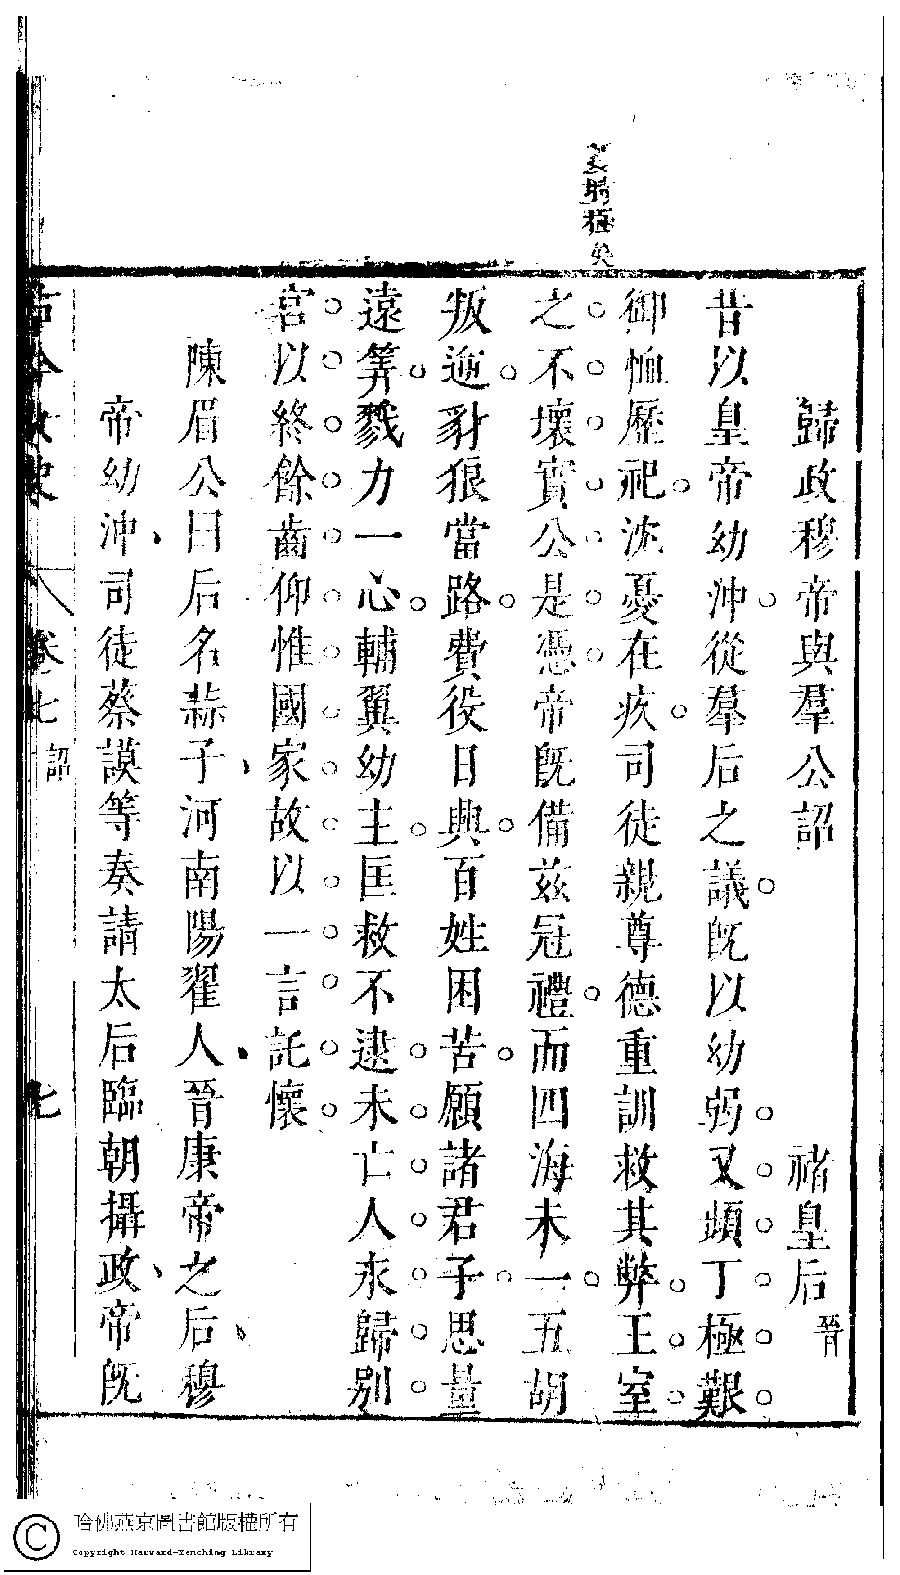 歸政穆帝與羣公詔
褚皇后晉
昔以皇帝幼沖從羣后之議旣以幼弱又頻丁極艱
御恤歷祀沈憂在疚司徒親尊德重訓救其弊王室
之不壞實公是憑帝旣備茲冠禮而四海未一五胡
叛逆豺狼當路費役日興百姓困苦願諸君子思量
遠筭戮力一心輔翼幼主匡救不逮未亡人永歸別
宮以終餘齒仰惟國家故以一言託懷
陳眉公曰后名蒜子河南陽翟人晉康帝之后穆
帝幼沖司徒蔡謨等奏請太后臨朝攝政帝旣
卷七 詔
七
哈佛燕京圖書館版權所有
Copyright Harvard-Yenching Library